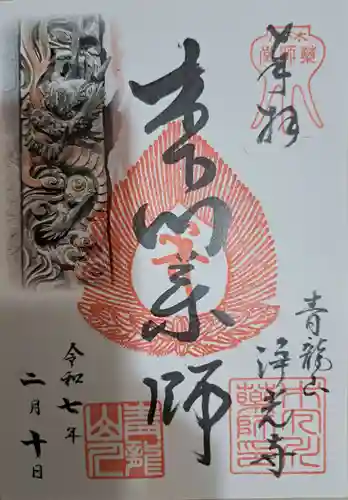 奉拝
木下川薬師
青龍山
浄光寺
令和七年
二月十日
青龍